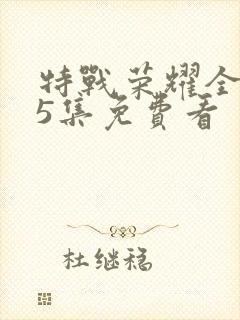 特戰荣耀全
5集免費看
杜继稳